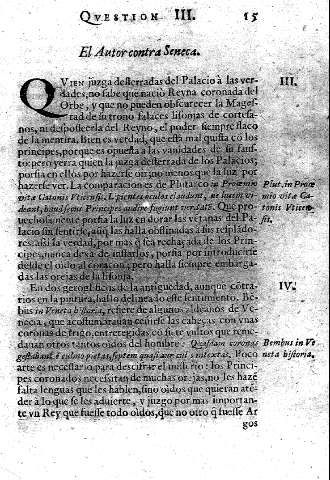 QVESTION III. 15
El Autor contra Seneca.
QVIEN juzga desterradas del Palacio à las ver-
dades, no sabe que naciò Reyna coronada del
Orbe, y que no pueden obscurecer la Mages-
tad de su trono falaces lisonjas de cortesa-
nos, ni desposserla del Reyno, el poder siempre flaco
de la mentira. Bien es verdad, que està mal quista cõ los
principes, porque es opuesta a las vanidades de su faus-
to: pero yerra quien la juzga desterrada de los Palacios;
porfia en ellos por hazerse oir, no menos que la luz por
hazerse ver. La comparacion es de Plutarco in Proæmio
vitæ Catonis Vticensis.
Palacio sin sentirse, aũq las halla obstinadas à sus respládo-
res: assi la verdad, por mas q sea rechazada de los Prin-
cipes, nunca dexa de instarlos, porfia por introducirse
desde el oido al coraçon, pero halla siempre embarga-
das las orejas de la lisonja.
En dos geroglificos de la antiguedad, aunque cótra-
rios en la pintura, hallo delineado este sentimiento. Bẽ-
bus in Veneta historia, refiere de algunos aldeanos de Ve-
necia, que acostumbravan ceñirse las cabeças con vnas
coronas de trigo, entretegidas de siete que reme-
davan otros tantos oidos del hombre: Quasdam coronas
gestabant è culmo
arte es necessario para descifrar el misterio: los Prin-
cipes coronados necessitan de muchas orejas, no les hazẽ
falta lenguas que les hablen, sino oidos que quieran atẽ-
der à lo que se les advierte, y juzgo por mas importan-
te vn Rey que fuesse todo oidos, que no otro q fuesse Ar
gos
III.
Plut. in Proæ
mio vitæ Ca-
tonis Vticen-
sis.
IV.
Bembus in Ve
neta historia.